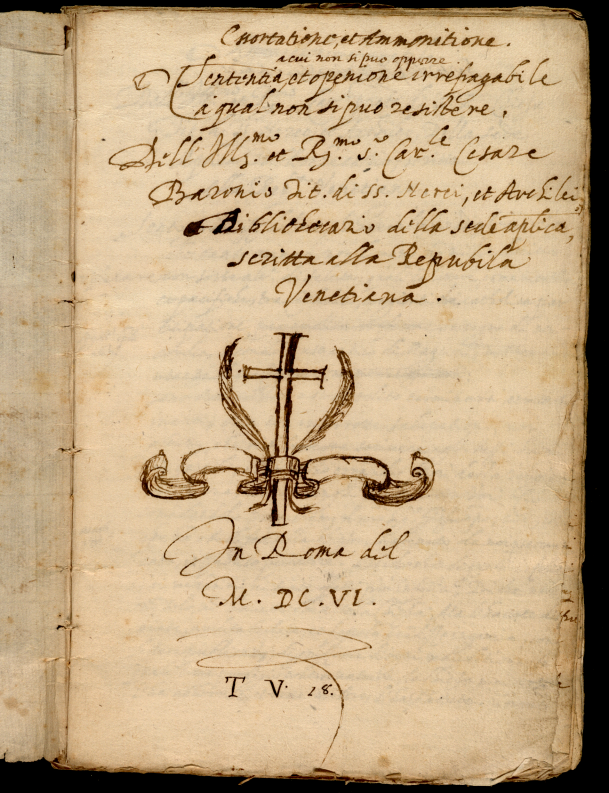 Essortatione, et Ammonitione.
a cui non si puo opporre.
Sententia, et openione irrefragabile
a qual non si puo resistere,
Dell' Ill.mo et R.mo s.r Car.le Cesare
Baronio Tit. di SS. Nerei, et Archilei
Bibliotecario della sede aplica,
scritta alla Repubila
Venetiana.
In Roma del
M. DC. VI.
T V. 18.